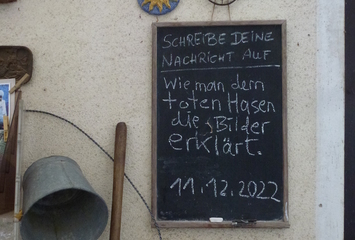 SCHREIBE DEINE
NACHRICHT AUF
Wie man dem
toten Hasen
die Bilder
erklärt.
11.12.2022